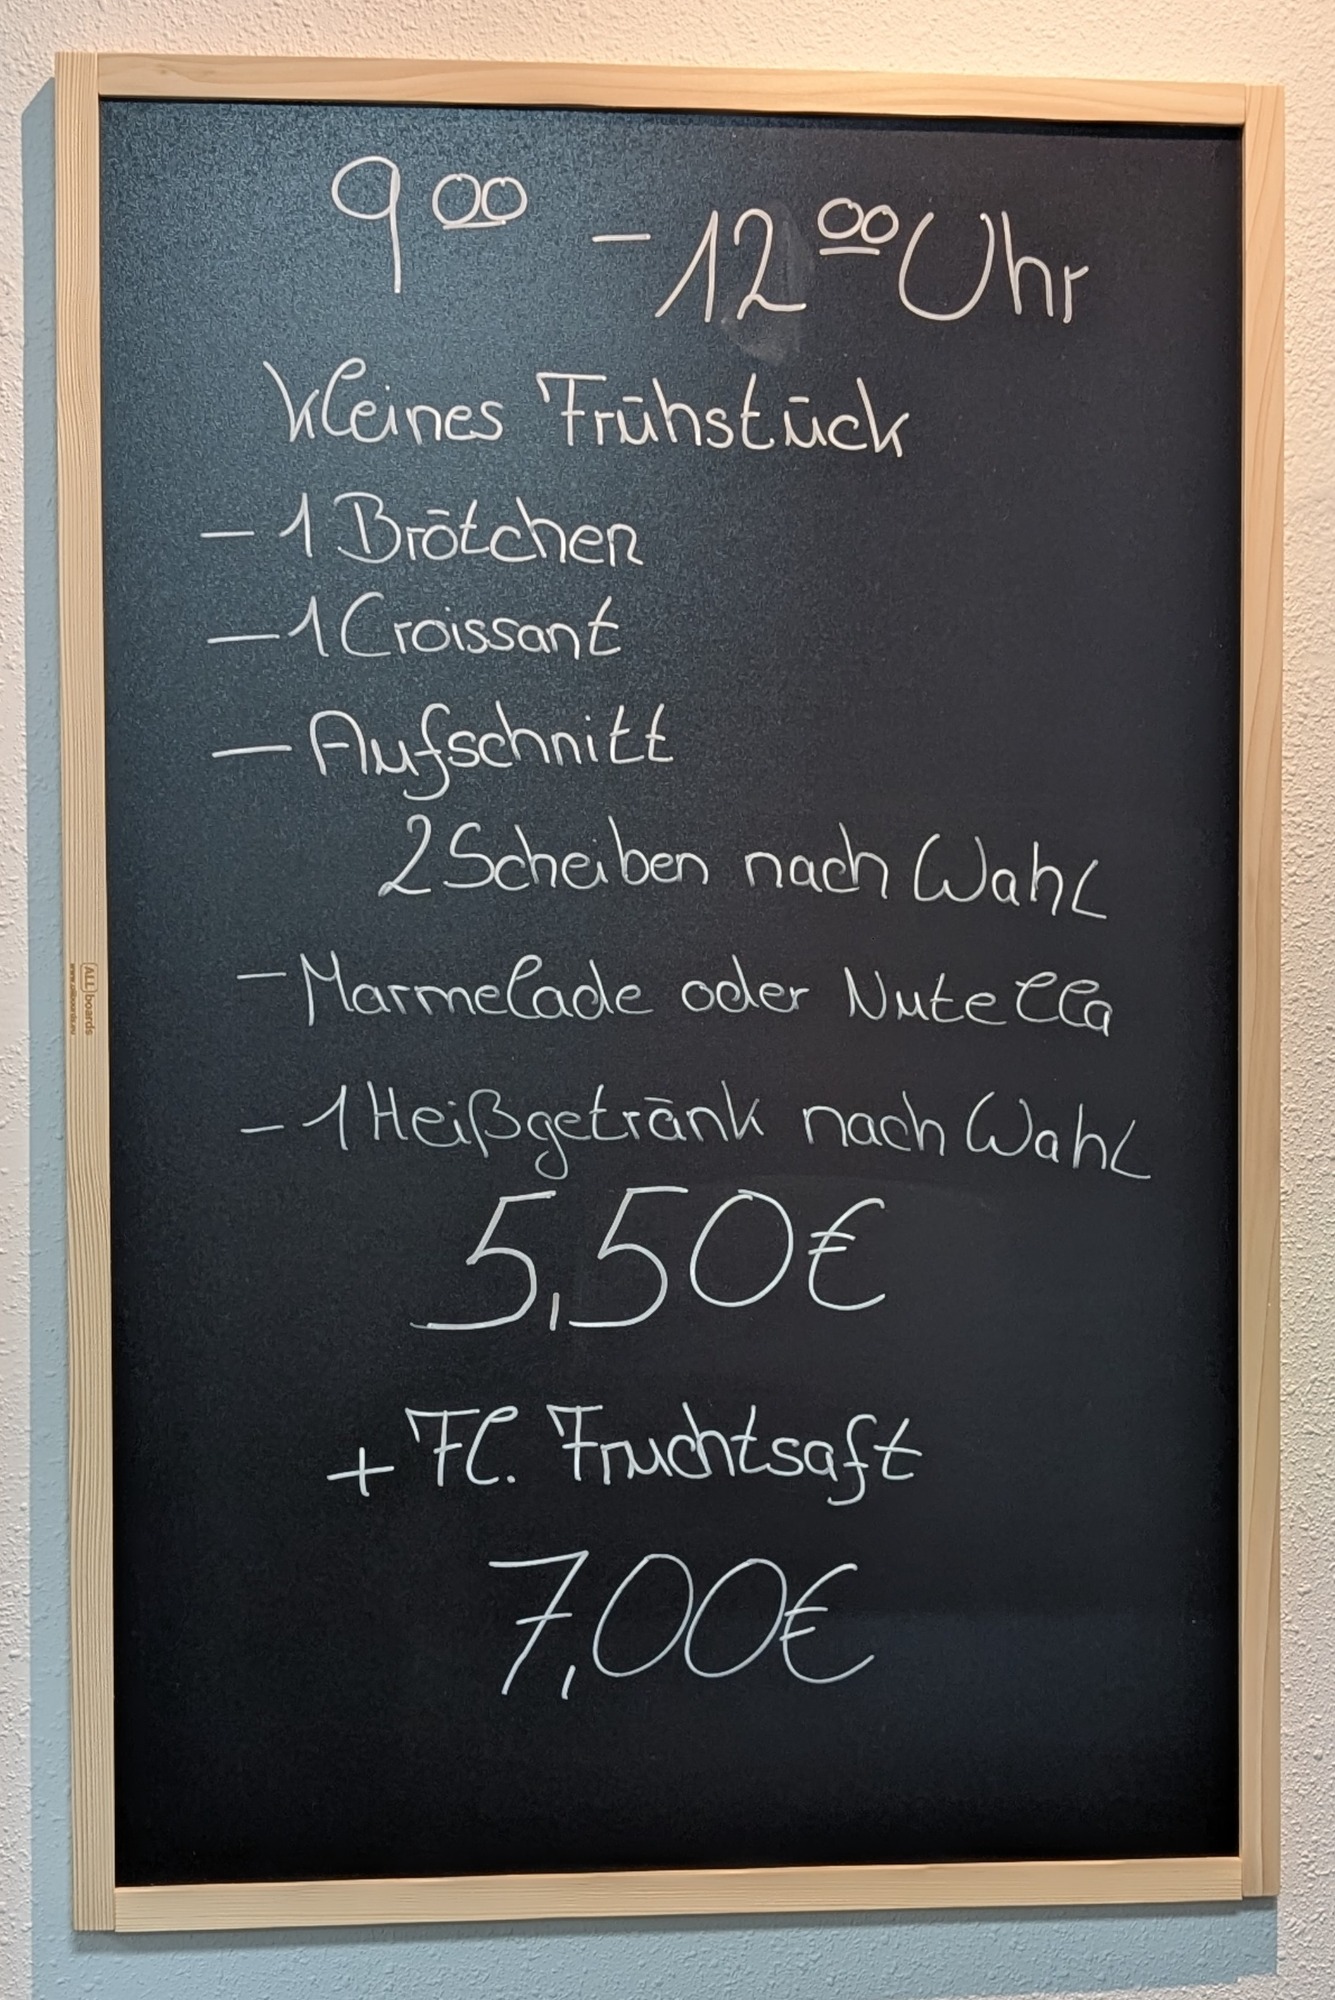 9 00 - 12 00 Uhr
kleines Frühstück
- 1 Brötchen
- 1 Croissant
- Aufschnitt
2 Scheiben nach Wahl
- Marmelade oder Nutella
- 1 Heißgetränk nach Wahl
5,50€
+ Fl. Fruchtsaft
7,00€
ALL boards
www.allboards.eu